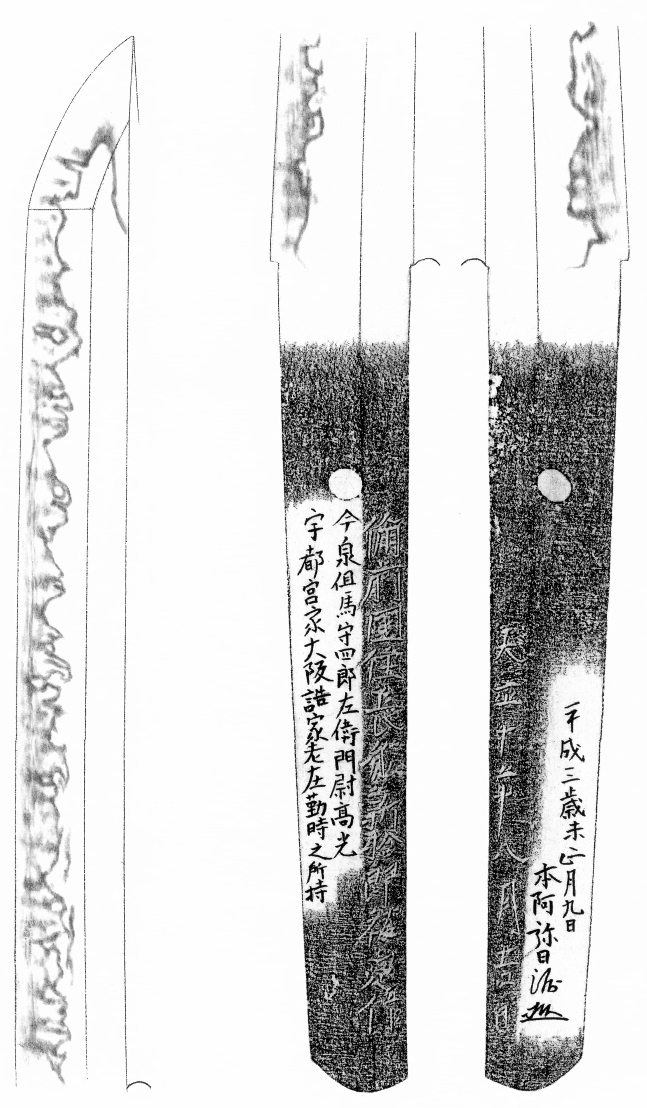 平成三歳未正月九日
本阿弥日洲
天正十年八月吉日
備前国住長船新拾郎祐定作
今泉但馬守四郎左衛門尉高光
宇都宮家大阪詰家老在勤時之所持